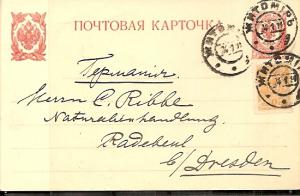 ПОЧТОВАЯ КАРТОЧКА
ЖИТОМІРЪ
ЖИТОМІРЪ
Германія.
Herrn C. Ribbe
Naturalienhandlung
Radebeul
b/Dresden